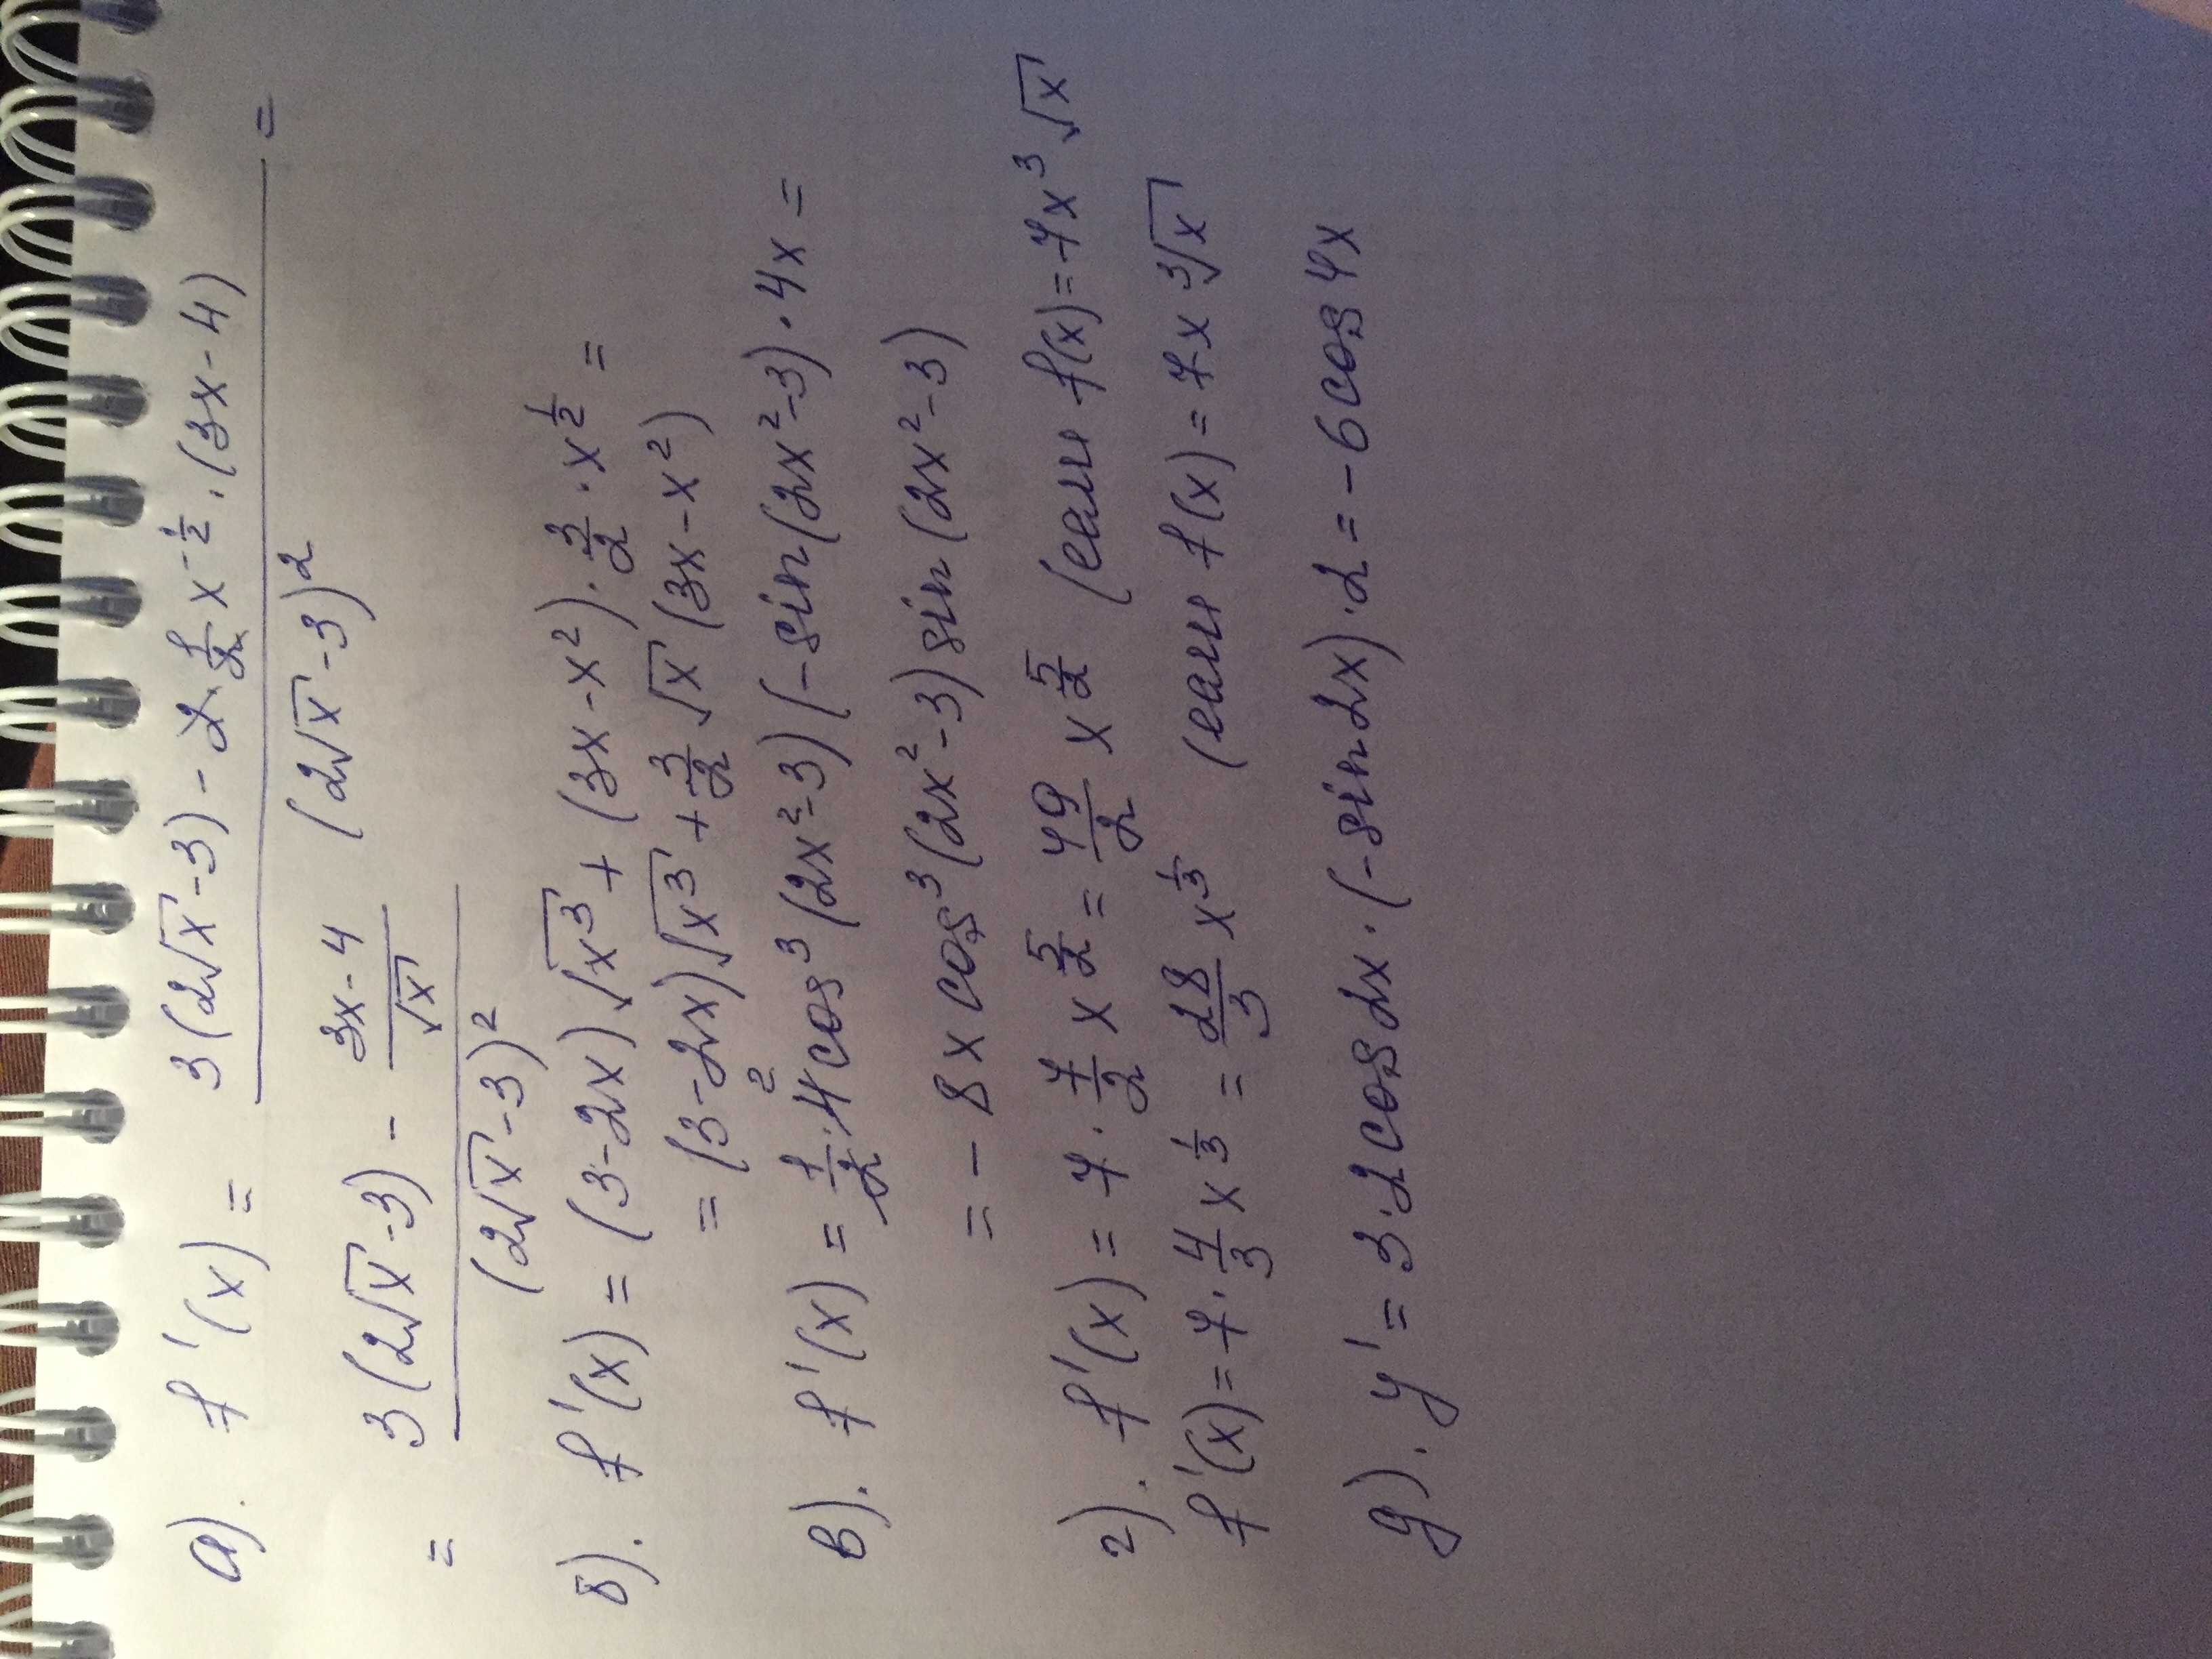 а). f'(x) = (3(2√x - 3) - 2·1/2·x^(-1/2)·(3x - 4))/(2√x - 3)² =
= (3(2√x - 3) - (3x - 4)/√x)/(2√x - 3)²
б). f'(x) = (3 - 2x)√x³ + (3x - x²)·3/2·x^(1/2) =
= (3 - 2x)√x³ + 3/2 √x (3x - x²)
в). f'(x) = 1/2·4² cos³(2x² - 3)(-sin(2x² - 3)·4x =
= - 8x cos³(2x² - 3) sin(2x² - 3)
г). f'(x) = 7·7/2 x^(5/2) = 49/2 x^(5/2) (если f(x) = 7x³√x
f'(x) = 7·4/3 x^(1/3) = 28/3 x^(1/3) (если f(x) = 7x ∛x
д). y' = 3·2cos2x·(-sin2x)·2 = -6cos4x